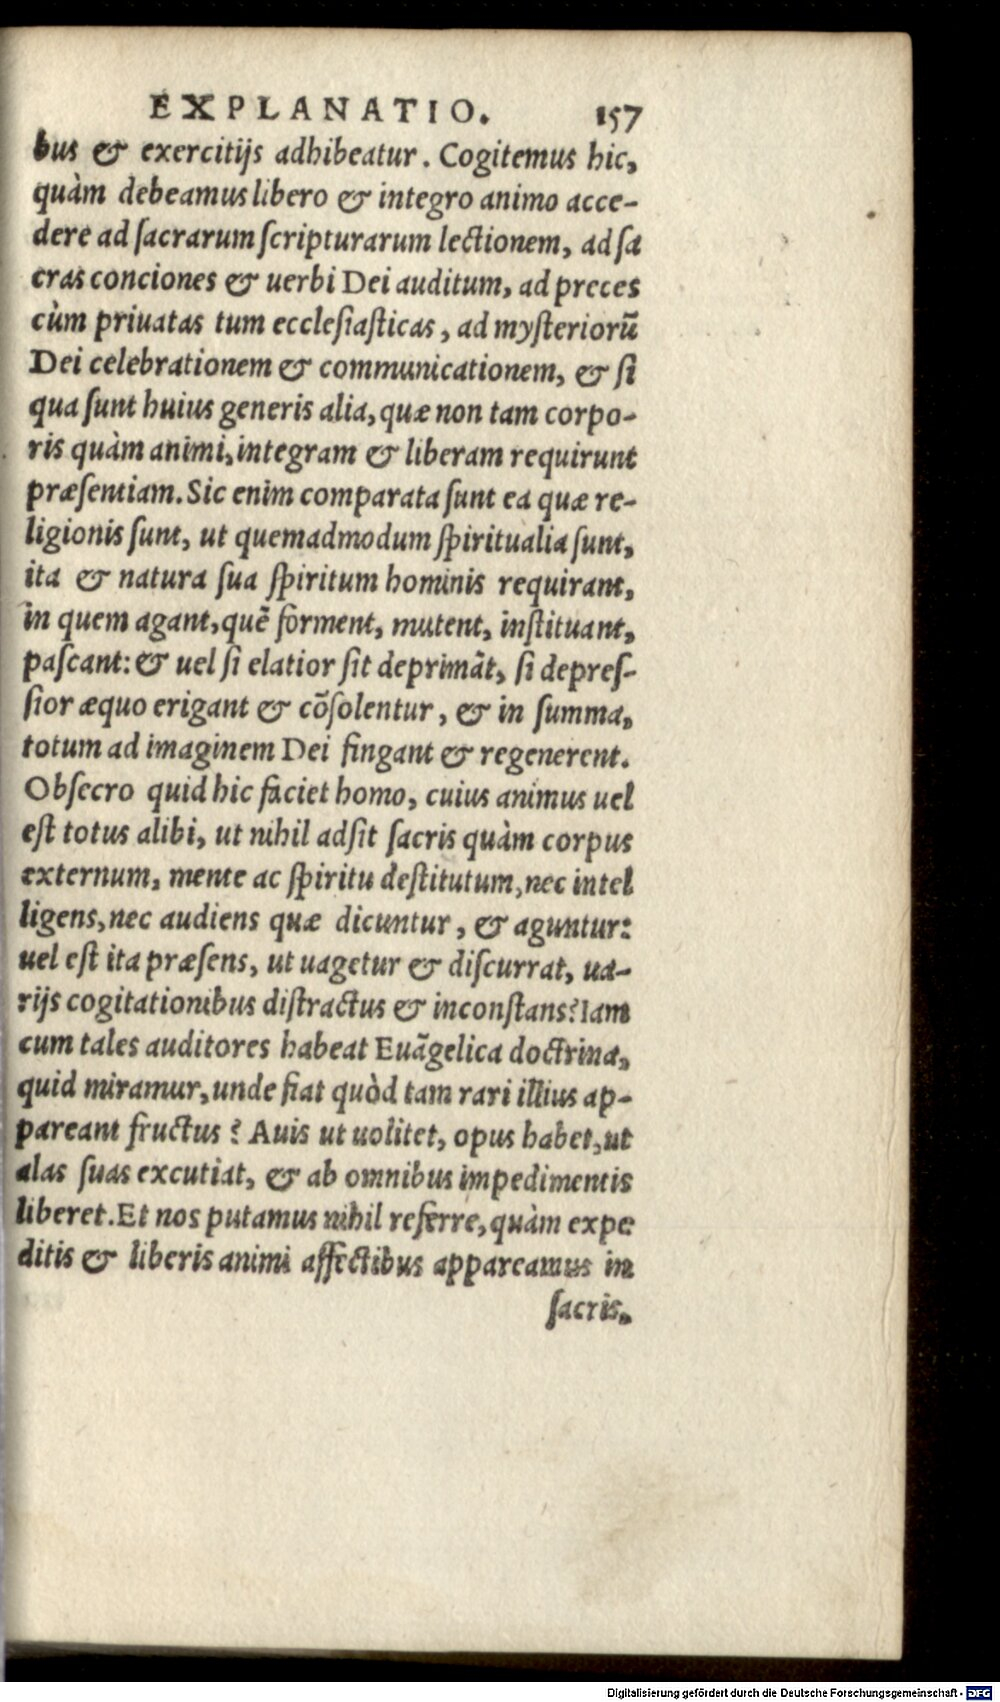 EXPLANATIO. 157
bus & exercitijs adhibeatur. Cogitemus hic,
quàm debeamus libero & integro animo acce-
dere ad ſacrarum ſcripturarum lectionem, ad ſa
cras conciones & uerbi Dei auditum, ad preces
cùm priuatas tum eccleſiaſticas, ad myſteriorũ
Dei celebrationem & communicationem, & ſi
qua ſunt huius generis alia, quæ non tam corpo-
ris quàm animi, integram & liberam requirunt
præſentiam. Sic enim comparata ſunt ea quæ re-
ligionis ſunt, ut quemadmodum ſpiritualia ſunt,
ita & natura ſua ſpiritum hominis requirant,
in quem agant, quẽ forment, mutent, inſtituant,
paſcant: & uel ſi elatior ſit deprimãt, ſi depreſ-
ſior æquo erigant & cõſolentur, & in ſumma,
totum ad imaginem Dei fingant & regenerent.
Obſecro quid hic faciet homo, cuius animus uel
eſt totus alibi, ut nihil adſit ſacris quàm corpus
externum, mente ac ſpiritu deſtitutum, nec intel
ligens, nec audiens quæ dicuntur, & aguntur:
uel eſt ita præſens, ut uagetur & diſcurrat, ua-
rijs cogitationibus diſtractus & inconſtans? Iam
cum tales auditores habeat Euãgelica doctrina,
quid miramur, unde fiat quòd tam rari illius ap-
pareant fructus? Auis ut uolitet, opus habet, ut
alas ſuas excutiat, & ab omnibus impedimentis
liberet. Et nos putamus nihil referre, quàm expe
ditis & liberis animi affectibus appareamus in
ſacris,
Digitalisierung gefördert durch die Deutsche Forschungsgemeinschaft - DFG